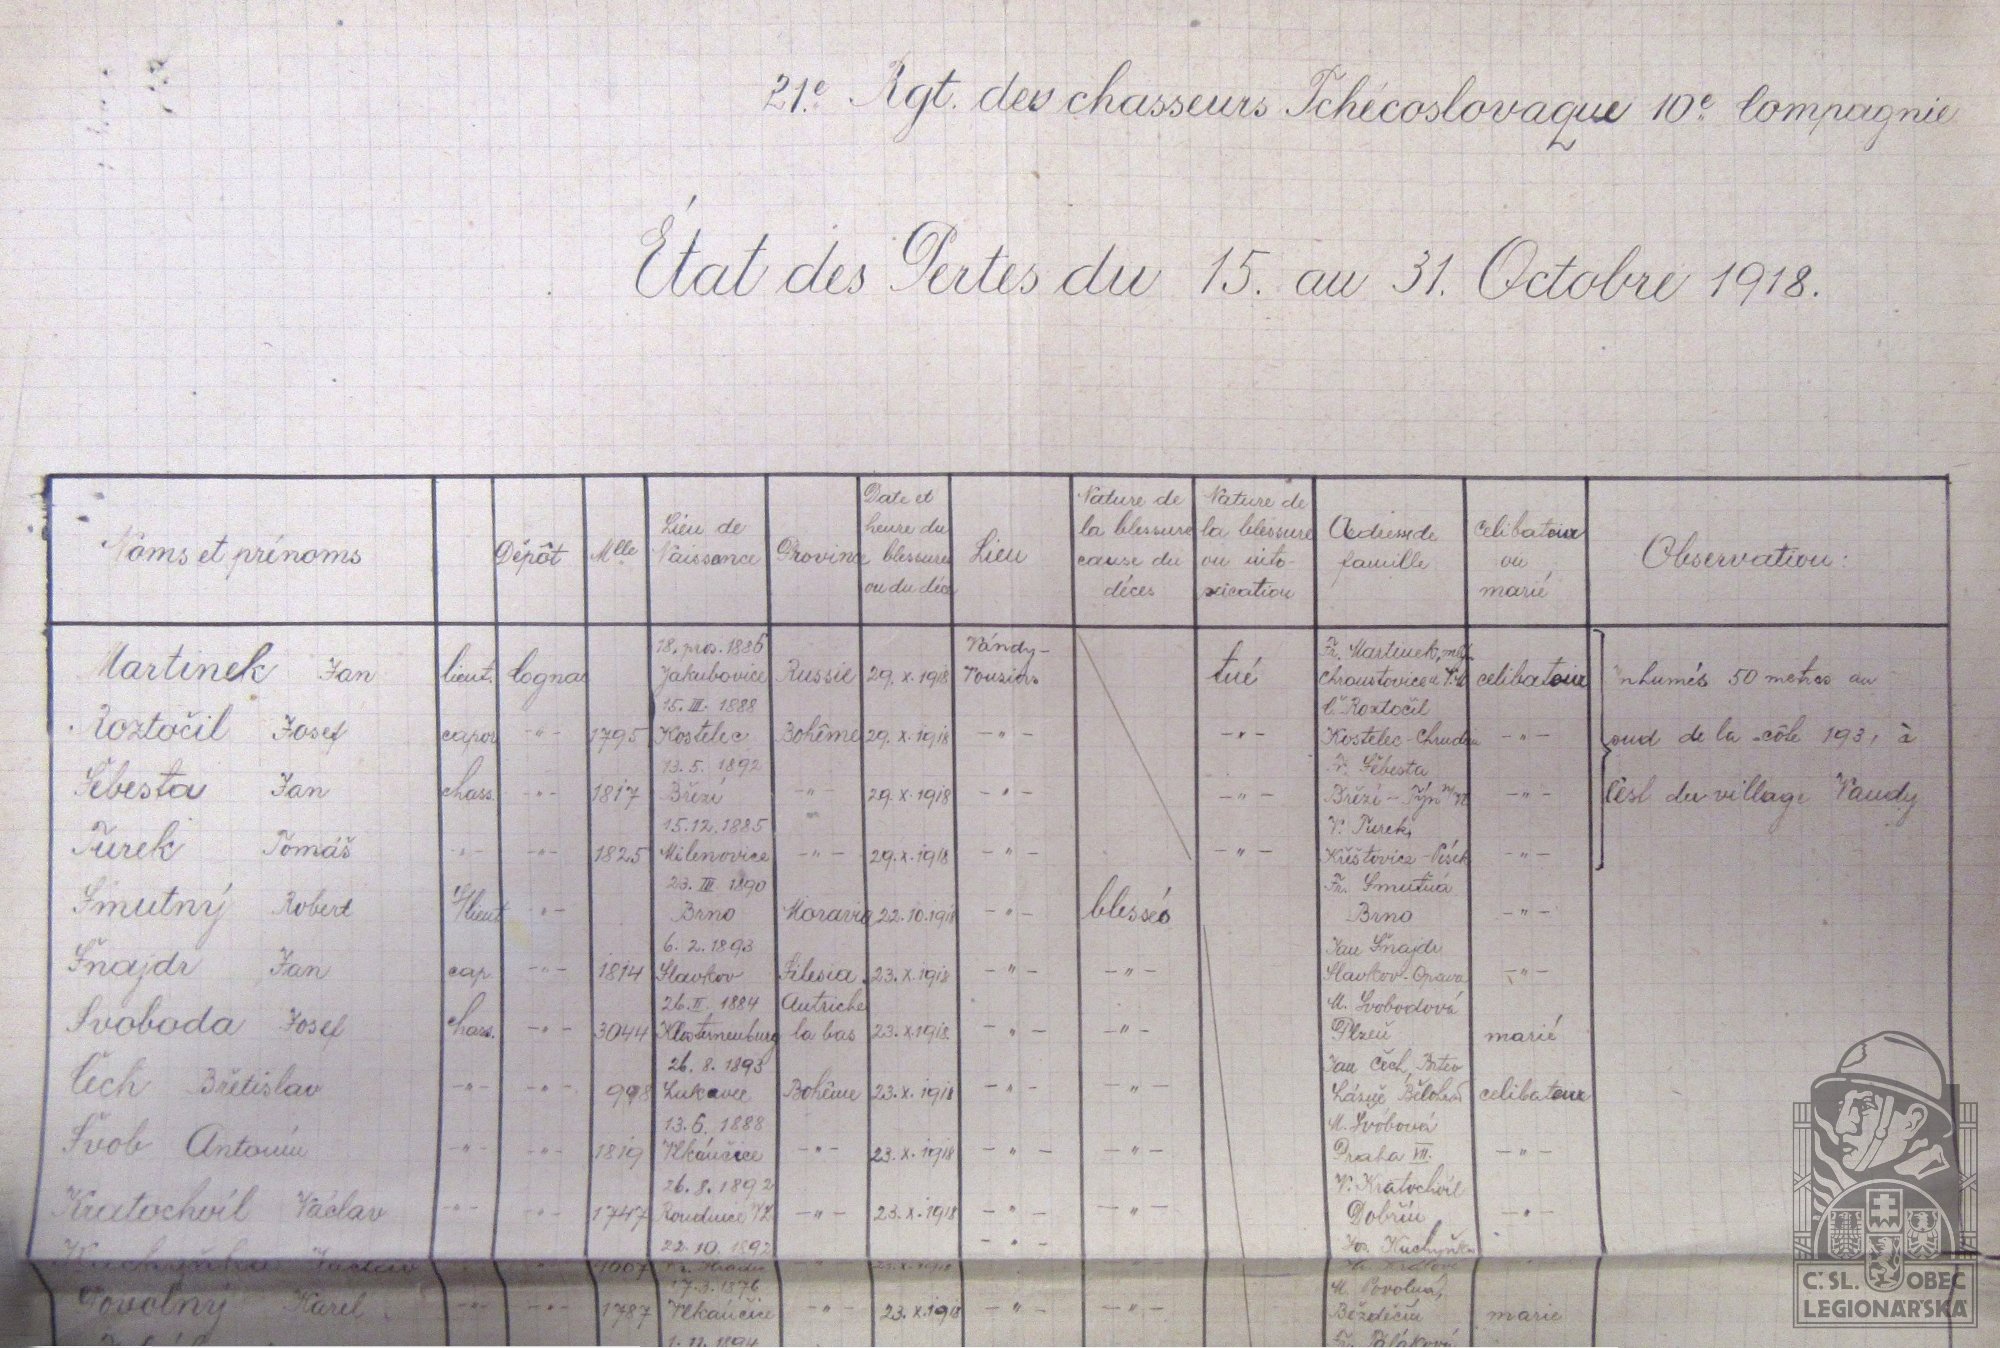 21.e Rgt. des chasseurs Tchécoslovaque 10e Compagnie
État des Pertes du 15. au 31. Octobre 1918.
Noms et prénoms Dépôt Mlle Lieu de Naissance Province Date et heure du blessures ou du déc Lieu Nature de la blessure cause du déces Nature de la blessure ou into-xication Adresse de famille celibataire ou marié Observation:
18. pros. 1886 Vándy- Fr. Martinek,
Martinek Jan lieut. Cognac Jakubovice Russie 29. X. 1918 Vouziers tué Chroustovice celibataire Inhumés 50 metres au
15. III. 1888 Č. Roztočil
Roztočil Josef capor -"- 1795 Kostelec Bohême 29. X. 1918 -"- -"- Kostelec-Chrudim -"- sud de la côte 193, à
13. 5. 1892 Šebesta
Šebesta Jan chass. -"- 1817 Březí -"- 29. X. 1918 -"- -"- Březí - Týn n/V -"- l'est du village Vandy
15. 12. 1885 V. Turek,
Turek Tomáš -"- -"- 1825 Milenovice -"- 29. X. 1918 -"- -"- Křeštovice - Písek -"-
23. III 1890 Fr. Smutná
Smutný Robert S/lieut -"- Brno Moravia 22. 10. 1918 -"- blessés Brno -"-
6. 2. 1893 Jan Šnajdr
Šnajdr Jan cap. -"- 1814 Slavkov Silesia 23. X. 1918 -"- -"- Slavkov-Opava -"-
26. II. 1884 Autriche M. Svobodová
Svoboda Josef chass. -"- 3044 Klosterneuburg la bas 23. X. 1918 -"- -"- Plzeň marié
26. 8. 1893 Jan Čech,
Čech Břetislav -"- -"- 998 Lukavec Bohême 23. X. 1918 -"- -"- Lázně Bělohrad celibataire
13. 6. 1888 M. Svobová
Švob Antonín -"- -"- 1819 Vlkančice -"- 23. X. 1918 -"- -"- Praha VII. -"-
26. 8. 1892 V. Kratochvíl
Kratochvíl Václav -"- -"- 1747 Roudnice -"- 23. X. 1918 -"- -"- Dobřín -"-
22. 10. 1892 -"- Jos. Kuchyňka
Kuchyňka
17. 3. 1876 M. Povolná,
Povolný Karel -"- -"- 1787 Vlkančice -"- 23. X. 1918 -"- -"- Bezděčín marié
1. 12. 1894
Č. SL. OBEC
LEGIONÁŘSKÁ